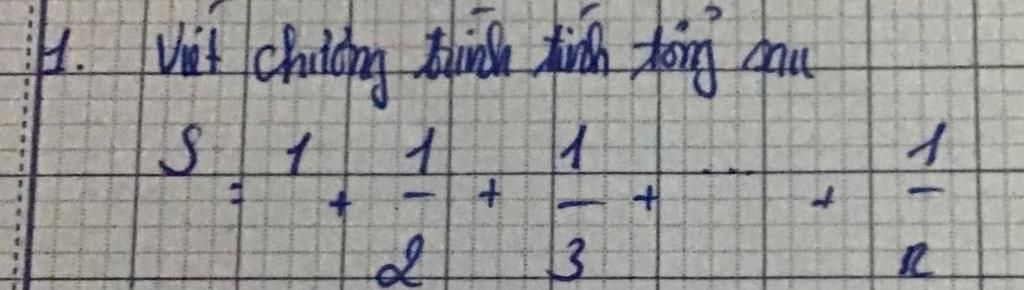 1. Viết chương trình tính tổng sau
S = 1 + 1/2 + 1/3 + ... + 1/n